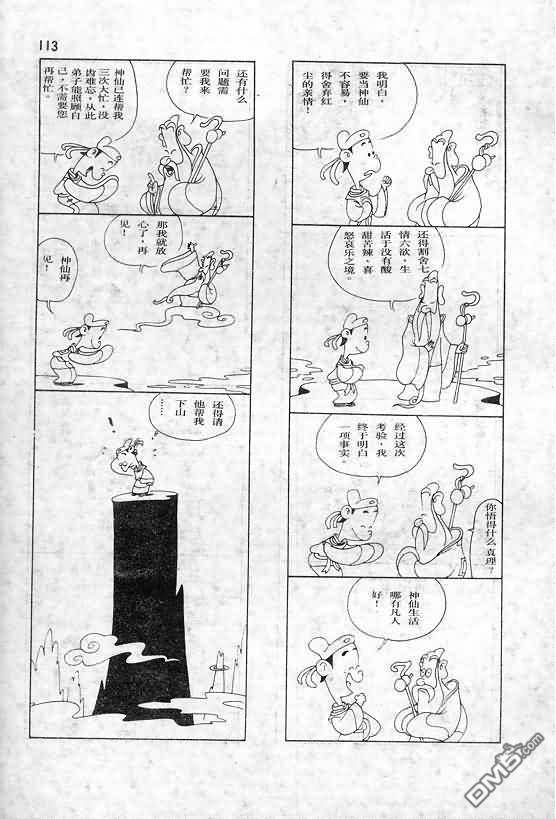 113
我明白，
要当神仙
不容易，
得舍弃红
尘的亲情！
还得割舍七
情六欲。生
活于没有酸
甜苦辣，喜
怒哀乐之境。
经过这次
考验，我
终于明白
一项事实。
你悟得
什么真理？
神仙生活
哪有凡人
好！
还有什么
问题需
要我来
帮忙？
神仙已连帮我
三次大忙，没
齿难忘，从此
弟子能照顾自
己，不需要您
再帮忙。
那我就放
心了，再
见！
神仙再
见！
还得请
他帮我
下山
……
DM5.com